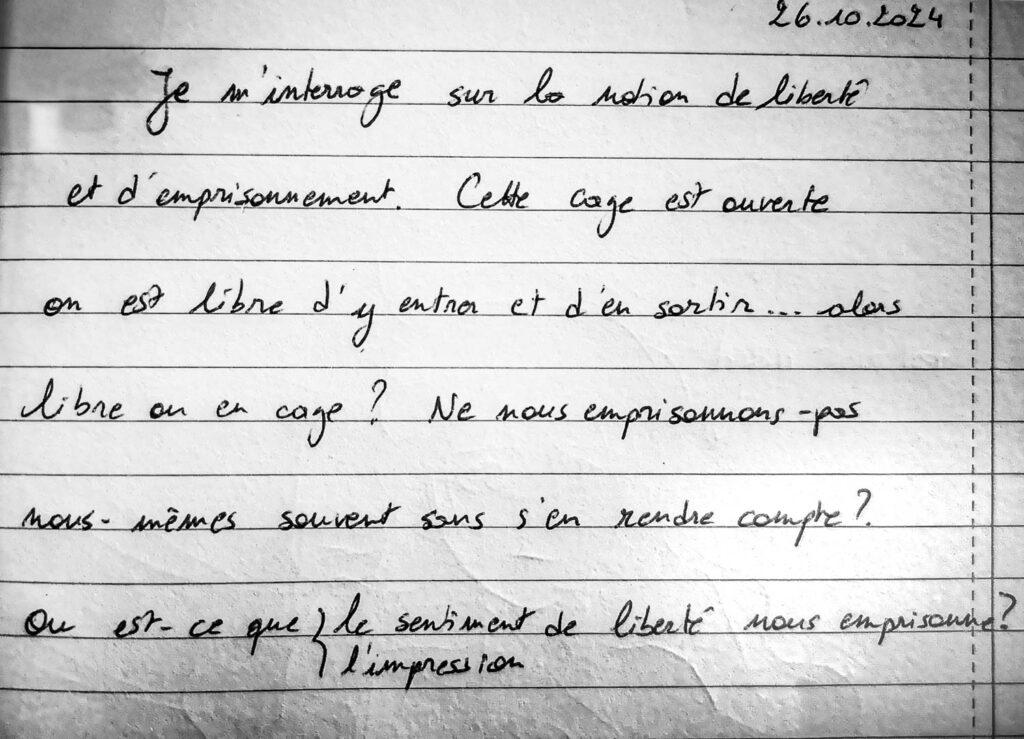 26.10.2024
Je m'interroge sur la notion de liberté
et d'emprisonnement. Cette cage est ouverte
on est libre d'y entrer et d'en sortir... alors
libre ou en cage ? Ne nous emprisonnons-pas
nous-mêmes souvent sans s'en rendre compte ?
Ou est-ce que } le sentiment de liberté nous emprisonne ?
} l'impression